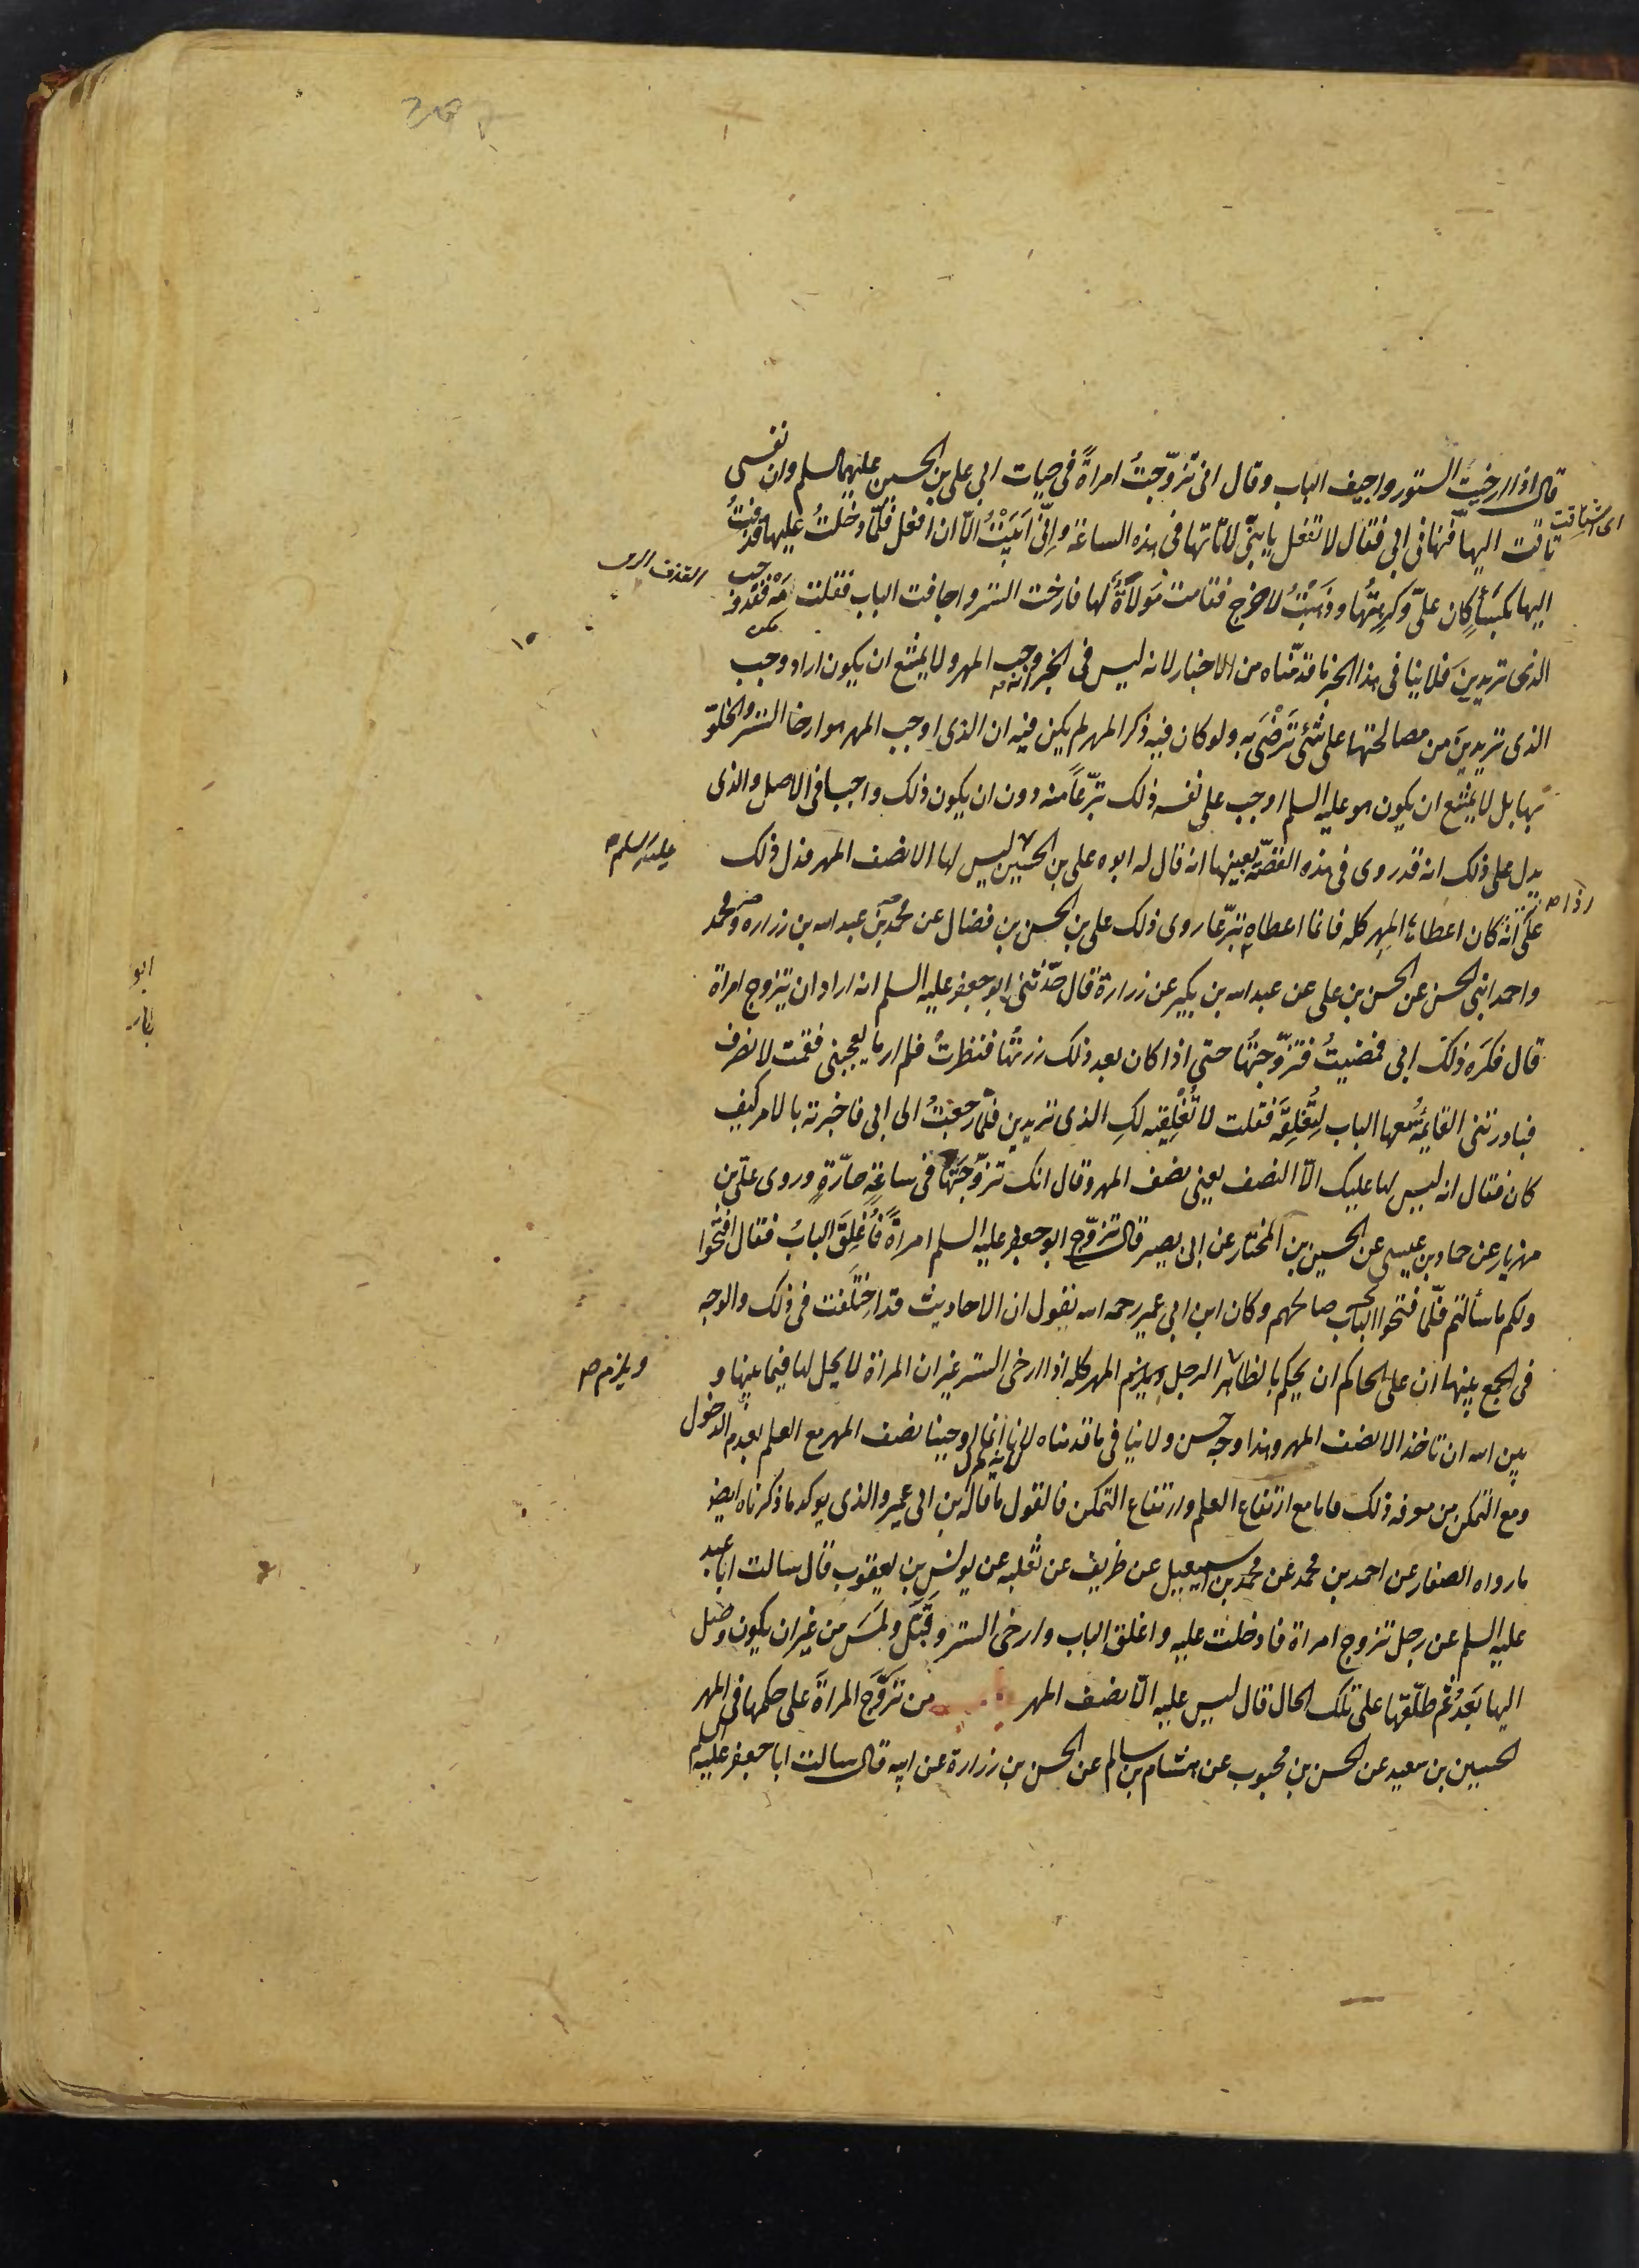 قال اذا ارخيت الستور واجيف الباب وقال انى تزوّجتُ امراةً فى حيات ابى على بن الحسين عليهما السلم وان نفسى
تاقت اليها فنهانى ابى فقال لا تفعل يا بنىّ لا تاتها فى هذه الساعة وانّى اَبَيْتُ الّا ان افعل فلمّا دخلتُ عليها قذفتُ
اليها بكساءٍ كان علىّ وكرهتُها وذهبتُ لاخرج فقامت مولاةٌ لها فارخت الستر واجافت الباب فقلت مَهْ فقد وجب
الذى تريدين فلا ينافى هذا الخبر ما قدمناه من الاخبار لانه ليس فى الخبر انه وجب المهر ولا يمتنع ان يكون اراد وجب
الذى تريدين من مصالحتها على شئ تَرْضَى به ولو كان فيه ذكر المهر لم يكن فيه ان الذى اوجب المهر هو ارخا الستر والخلوة
بها بل لا يمتنع ان يكون هو عليه السلم اوجب على نفسه ذلك تبرّعاً منه دون ان يكون ذلك واجبا فى الاصل والذى
يدل على ذلك انه قد روى فى هذه القصّة بعينها انه قال له ابوه على بن الحسين ليس لها الا نصف المهر فدل ذلك
عليه السلم
على انّه كان اعطاها المهر كله فانما اعطاه تبرّعا روى ذلك على بن الحسن بن فضال عن محمد بن عبد الله بن زراره ومحمد
واحمد ابنى الحسن عن الحسن بن على عن عبد الله بن بكير عن زرارة قال حدّثنى ابو جعفر عليه السلم انه اراد ان يتزوج امراة
قال فكَرِه ذلك ابى فمضيتُ فتزوّجتُها حتى اذا كان بعد ذلك زرتُها فنظرتُ فلم ار ما يعجبنى فقمت لانصرف
فبادرتنى القايمةُ معها الباب لِتُغلِقَه فقلت لا تُغْلِقيه لكِ الذى تريدين فلمّا رجعتُ الى ابى فاخبرته بالامر كيف
كان فقال انه ليس لها عليك الّا النصف يعنى نصف المهر وقال انك تزوّجتَها فى ساعةٍ حارّةٍ وروى علىّ بن
مهزيار عن حماد بن عيسى عن الحسين بن المختار عن ابى بصير قال تزوّج ابو جعفر عليه السلم امراةً فأُغلِقَ البابُ فقال افتحوا
ولكم ما سألتم فلمّا فتحوا الباب صالحهم وكان ابن ابى عمير رحمه الله يقول ان الاحاديث قد اختلفت فى ذلك والوجه
فى الجمع بينها ان على الحاكم ان يحكم بالظاهر الرجل ويلزم المهر كله اذا ارخى الستر غير ان المراة لا يحل لها فيما بينها و
ويلزم
بين الله ان تاخذ الا نصف المهر وهذا وجه حسن ولا ينافى ما قدمناه لانا انما اوجبنا نصف المهر مع العلم بعدم الدخول
ومع التمكن من معرفه ذلك فاما مع ارتفاع العلم وارتفاع التمكن فالقول ما قاله بن ابى عمير والذى يوكد ما ذكرناه ايضا
ما رواه الصفار عن احمد بن محمد عن محمد بن اسمعيل عن ظريف عن ثعلبه عن يونس بن يعقوب قال سالت ابا عبد
عليه السلم عن رجل تزوج امراة فادخلت عليه واغلق الباب وارخى الستر وقَبَّل ولمَسَ من غير ان يكون وصل
اليها بَعدُ ثم طلّقها على تلك الحال قال ليس عليه الّا نصف المهر من تزوّج المراة على حكمها فى المهر
الحسين بن سعيد عن الحسن بن محبوب عن هشام بن سالم عن الحسن بن زرارة عن ابيه قال سالت ابا جعفر عليه السلم